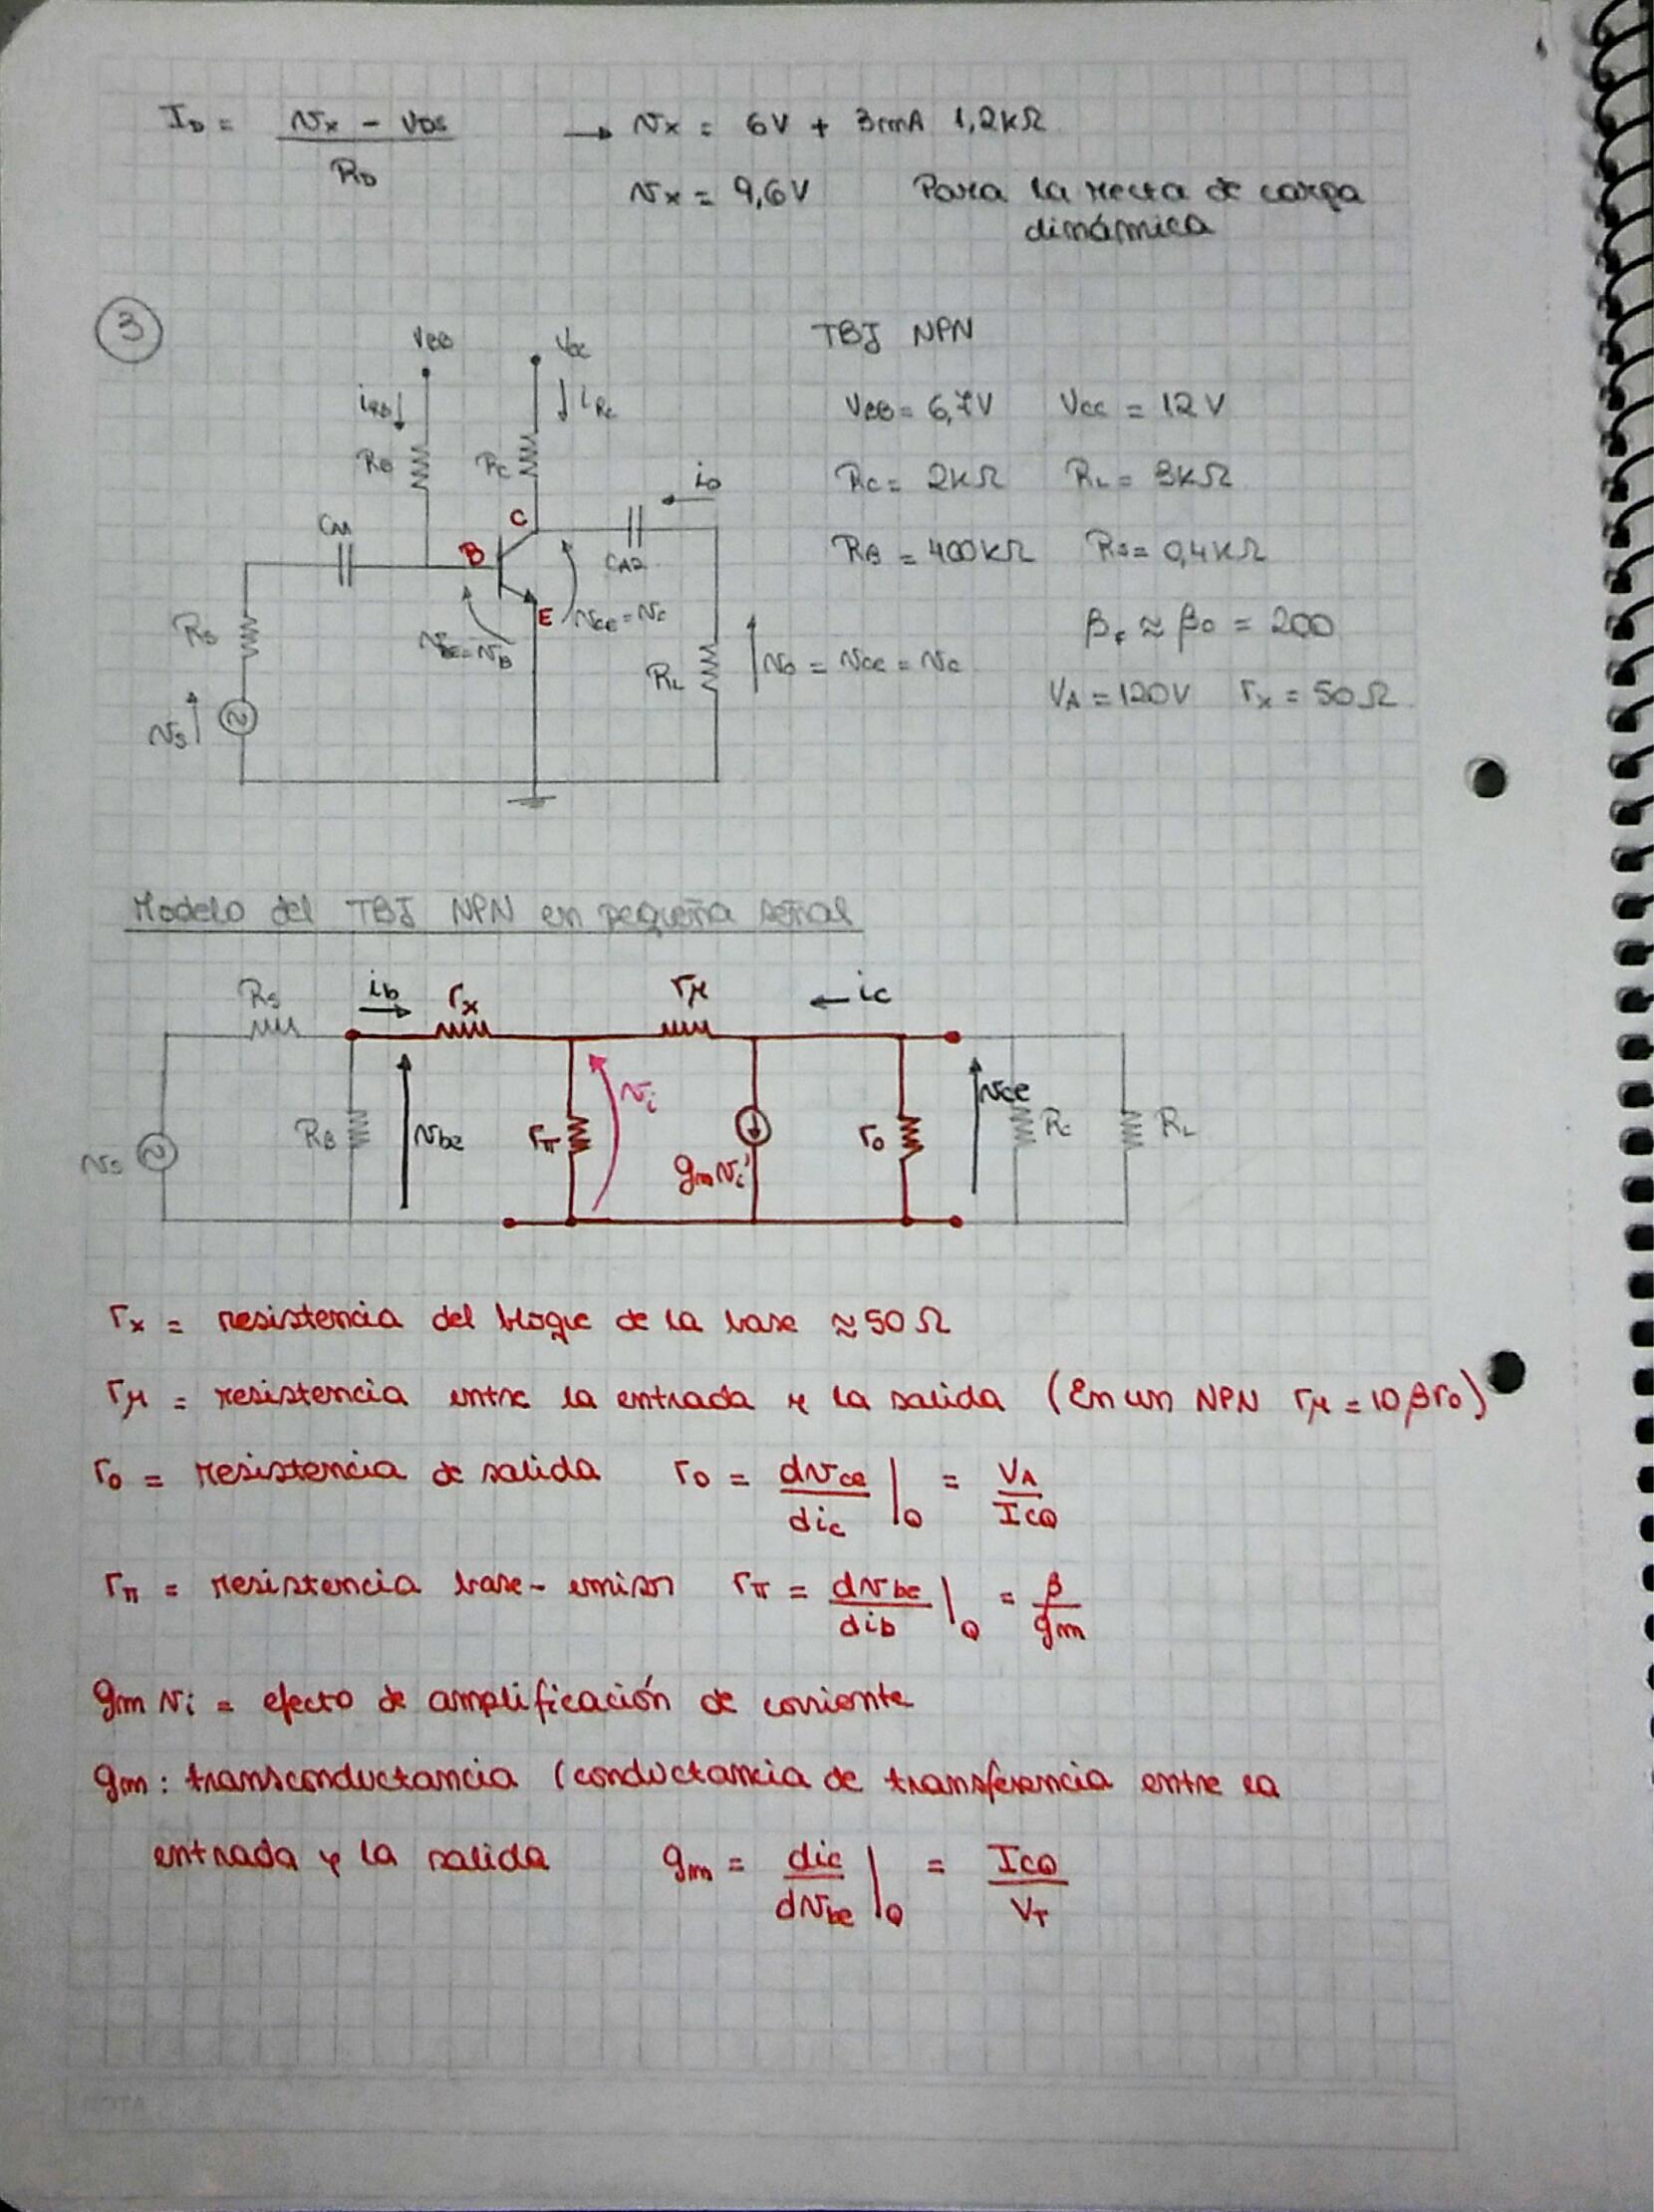 I_D = (v_x - v_DS) / R_D → v_x = 6V + 3mA 1,2kΩ
v_x = 9,6V Para la recta de carga
dinámica
③
TBJ NPN
V_BB V_CC
V_BB = 6,7V V_CC = 12V
i_RB i_RC
R_B R_C i_o
R_C = 2kΩ R_L = 3kΩ
C_A1 B C C_A2
R_B = 400kΩ R_S = 0,4kΩ
E v_ce = v_c
R_S v_BE = v_B
β_F ≈ β_0 = 200
R_L v_o = v_ce = v_c
V_A = 120V r_x = 50Ω
v_s
Modelo del TBJ NPN en pequeña señal
R_S i_b r_x r_μ i_c
v_i v_ce
v_s R_B v_be r_π g_m v_i r_o R_C R_L
r_x = resistencia del bloque de la base ≈ 50Ω
r_μ = resistencia entre la entrada y la salida (En un NPN r_μ = 10βr_o)
r_o = resistencia de salida r_o = dv_ce / di_c |_Q = V_A / I_CQ
r_π = resistencia base - emisor r_π = dv_be / di_b |_Q = β / g_m
g_m v_i = efecto de amplificación de corriente
g_m : transconductancia (conductancia de transferencia entre la
entrada y la salida g_m = di_c / dv_be |_Q = I_CQ / V_T
NOTA